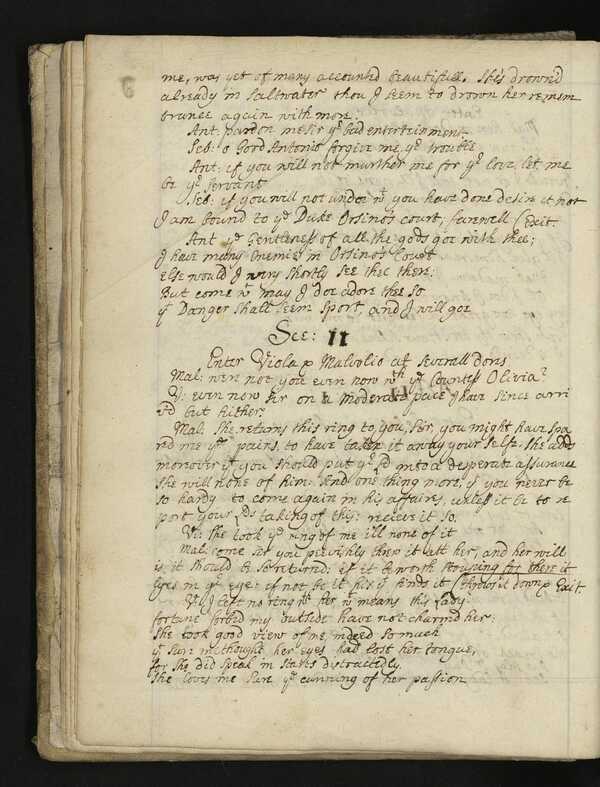 me, was yet of many accounted beautifull. She's drownd
already in saltwater thou I seem to drown her remem
brance again with more.
Ant: pardon me sir yr bad entertainment
Seb: o Good Antonio forgive me yr trouble
Ant: if you will not murther me for yr love let me
be yr servant
Seb: if you will not undoe wt you have done desire it not
I am bound to ye Duke Orsino's court, farewell / Exit.
Ant ye Gentleness of all the gods goe with thee;
I have many Enemies in Orsino's Court
Else would I very shortly see thee there:
But come wt may I doe adore thee so
yt Danger shall seem sport, and I will goe
Sce: II
Enter Viola & Malvolio at severall dors
Mal: wer not you even now wth ye Countess Olivia?
V: even now sir on a moderate pace I have since arri
vd but hither.
Mal. She returns this ring to you, Sir, you might have spa
red me yr pains, to have taken it away your selfe. She adds
moreover yt you should put yr Ld into a desperate assurance
She will none of him. And one thing more, yt you never be
so hardy to come again in his affairs, unless it be to re
port your Lds taking of this: recieve it so.
Vi: She took ye ring of me ill none of it
Mal: come sir you peevishly threw it att her, and her will
is it should be so returnd: if it be worth stouping for there it
lyes in yr eye: if not be it his yt finds it / throws it down & Exit.
Vi: I left no ring wth her wt means this Lady
fortune forbid my outside have not charmd her:
She took good view of me, indeed so much
yt sure methought her eyes had lost her tongue,
for she did speak in starts distractedly.
She loves me sure ye cunning of her passion